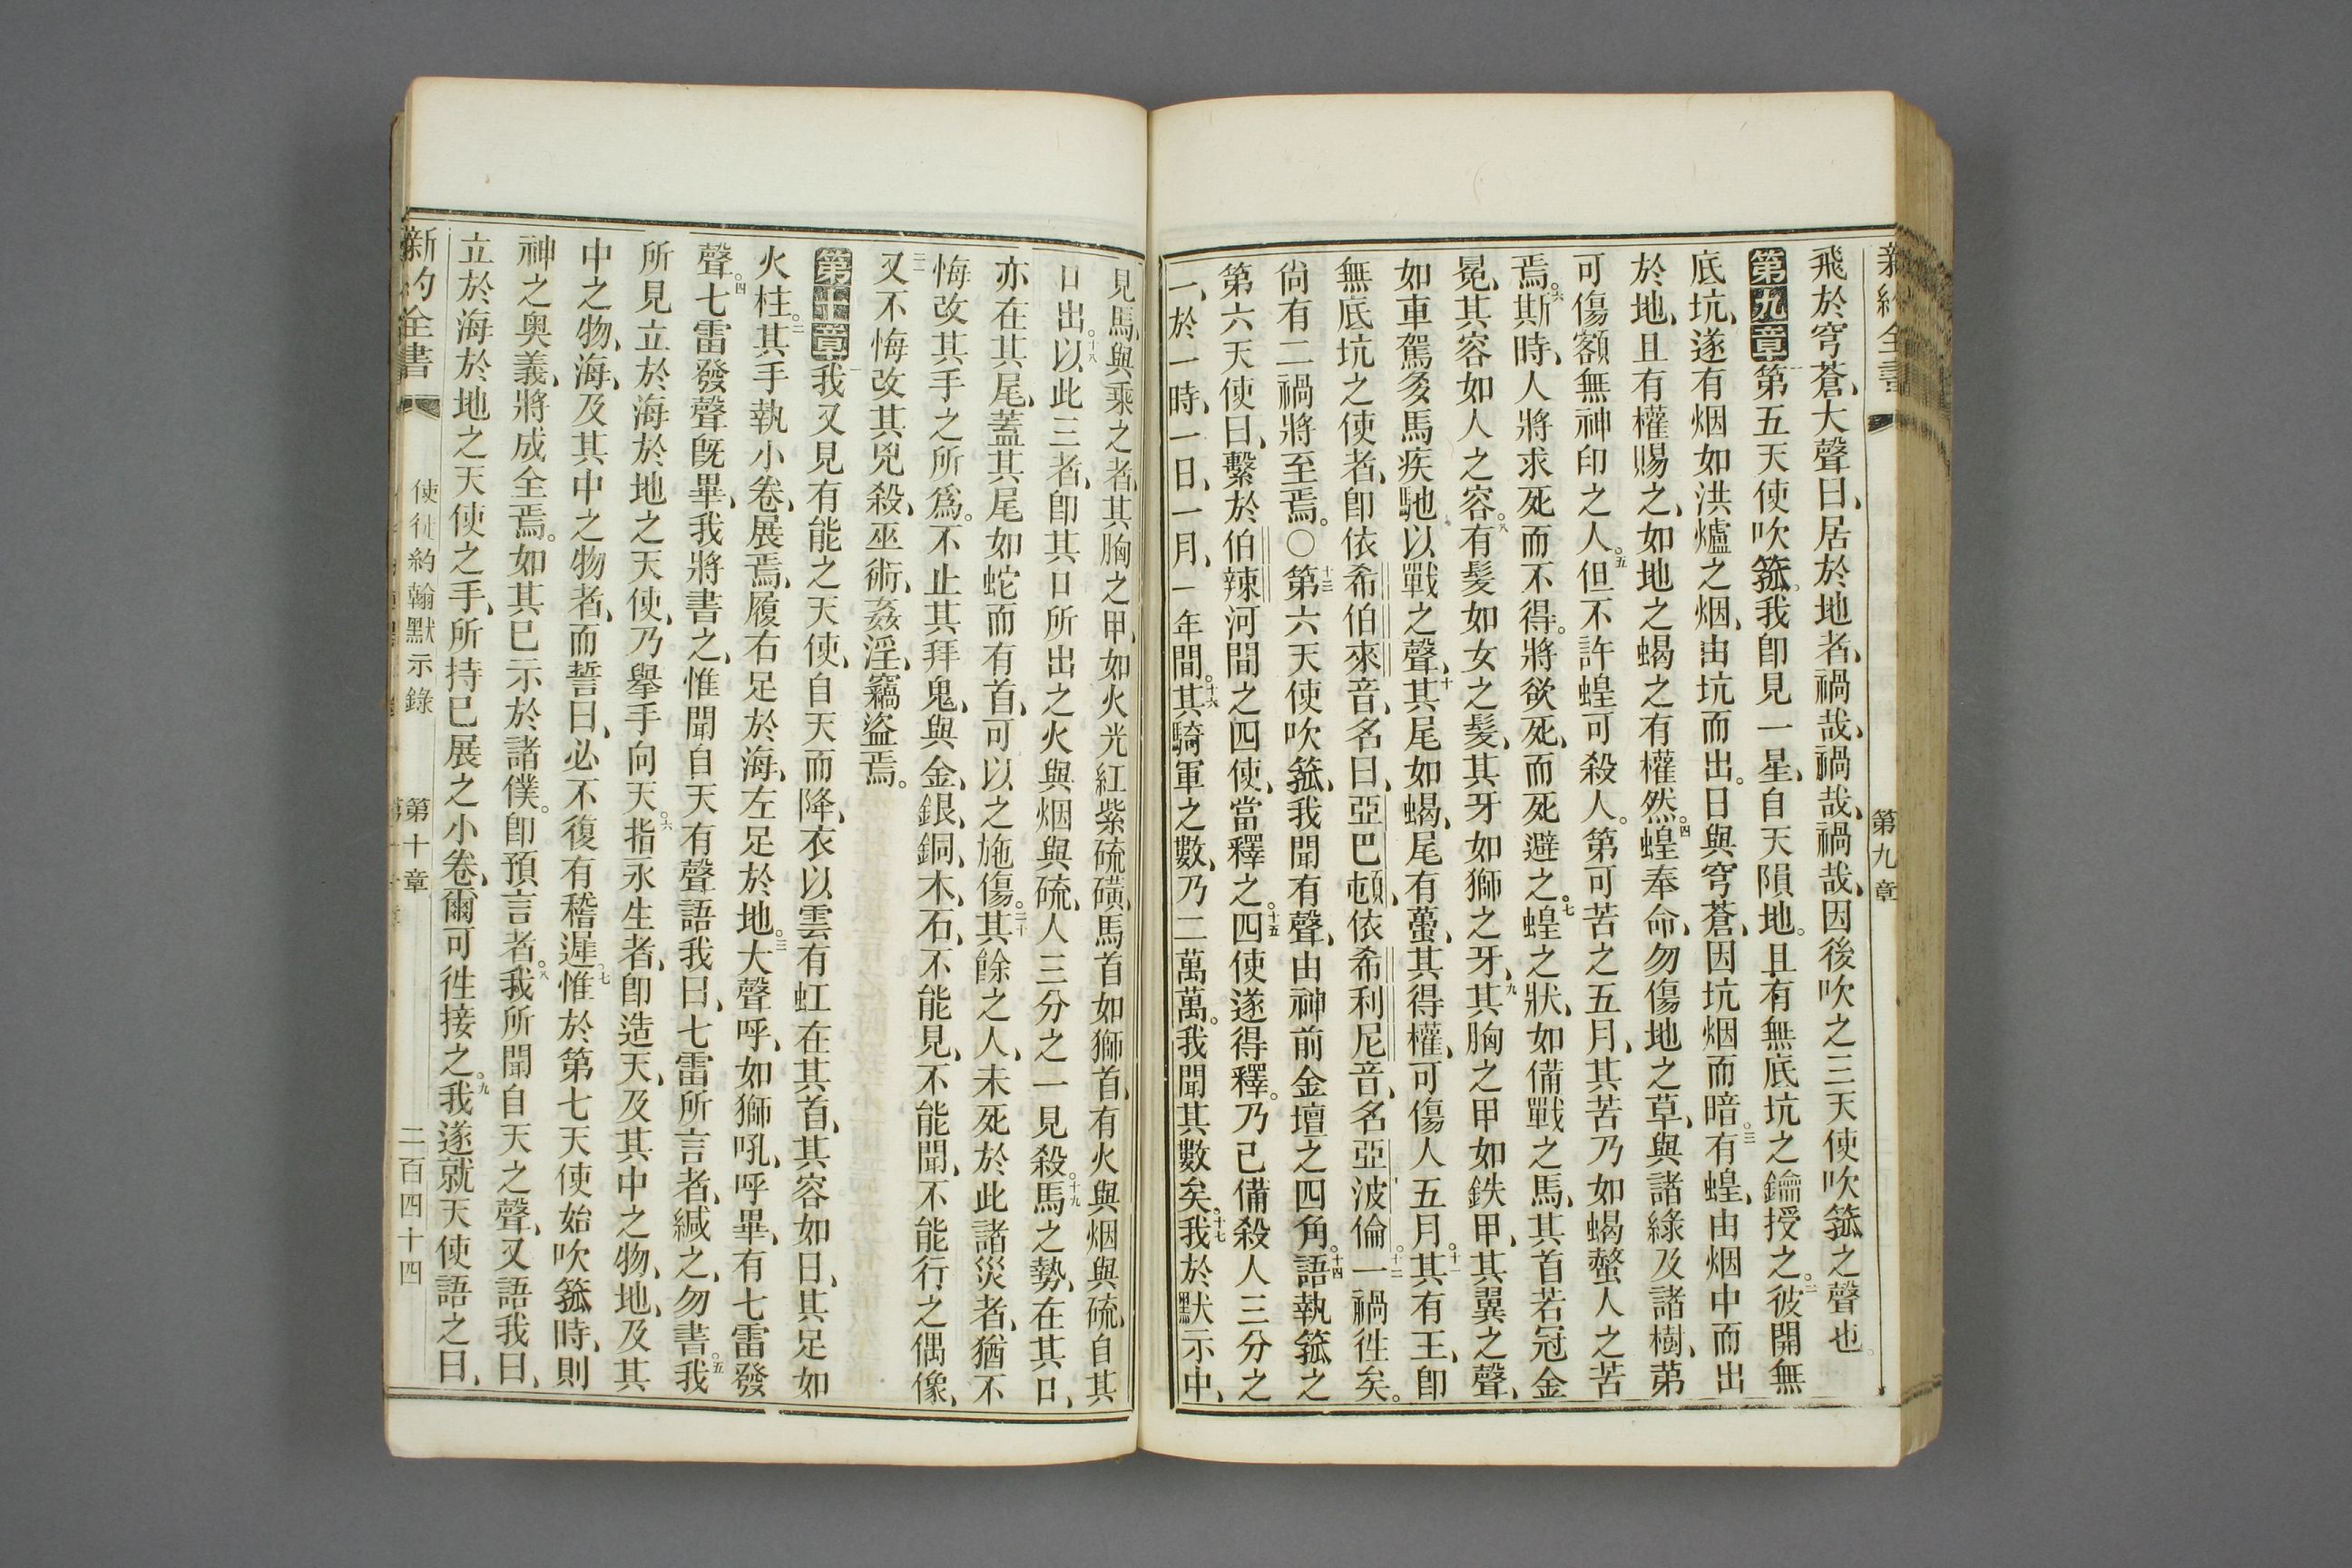 新約全書 第九章
飛於穹蒼、大聲曰、居於地者、禍哉、禍哉、禍哉、因後吹之三天使吹箛之聲也。
第九章 一第五天使吹箛。我卽見一星、自天隕地。且有無底坑之鑰授之。二彼開無
底坑、遂有烟如洪爐之烟、由坑而出。日與穹蒼、因坑烟而暗。三有蝗、由烟中而出
於地、且有權賜之、如地之蝎之有權然。四蝗奉命、勿傷地之草、與諸綠及諸樹、第
可傷額無神印之人。五但不許蝗可殺人。第可苦之五月、其苦乃如蝎螫人之苦
焉。六斯時、人將求死而不得。將欲死、而死避之。七蝗之狀、如備戰之馬、其首若冠金
冕、其容如人之容。八有髮如女之髮、其牙如獅之牙、九其胸之甲如鉄甲、其翼之聲、
如車駕多馬疾馳以戰之聲、十其尾如蝎、尾有蠆、其得權、可傷人五月。十一其有王、卽
無底坑之使者、卽依希伯來音、名曰、亞巴頓、依希利尼音、名亞波倫。十二一禍徃矣。
尙有二禍將至焉。〇十三第六天使吹箛、我聞有聲、由神前金壇之四角。十四語執箛之
第六天使曰、繫於伯辣河間之四使、當釋之。十五四使遂得釋。乃已備殺人三分之
一、於一時、一日、一月、一年間。十六其騎軍之數、乃二萬萬。我聞其數矣。十七我於默示中、
見馬、與乘之者、其胸之甲、如火光紅紫硫磺、馬首如獅首、有火與烟與硫、自其
口出。十八以此三者、卽其口所出之火與烟與硫、人三分之一見殺。十九馬之勢、在其口、
亦在其尾、蓋其尾如蛇而有首、可以之施傷。二十其餘之人、未死於此諸災者、猶不
悔改其手之所爲。不止其拜鬼、與金、銀、銅、木、石、不能見、不能聞、不能行之偶像、
二一又不悔改其兇殺、巫術、姦淫、竊盜焉。
第十章 一我又見有能之天使、自天而降、衣以雲有虹在其首、其容如日、其足如
火柱。二其手執小卷、展焉、履右足於海、左足於地。三大聲呼、如獅吼、呼畢、有七雷發
聲。四七雷發聲旣畢、我將書之、惟聞自天有聲語我曰、七雷所言者、緘之、勿書。五我
所見立於海於地之天使、乃擧手向天。六指永生者、卽造天、及其中之物、地、及其
中之物、海、及其中之物者、而誓曰、必不復有稽遲。七惟於第七天使始吹箛時、則
神之奧義、將成全焉。如其已示於諸僕。卽預言者。八我所聞自天之聲、又語我曰、
立於海於地之天使之手、所持已展之小卷、爾可徃接之。九我遂就天使語之曰、
新約全書 使徒約翰默示錄 第十章 二百四十四